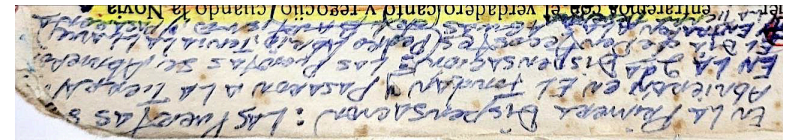 En LA PRIMERA DISPENSACION: LAS PUERTAS S
ABRIERON EN EL JORDAN Y PASARON A LA TIERRA.
EN LA 2da DISPENSACION LAS PUERTAS SE ABRIERON
EL DIA DE PENTECOSTES PEDRO ABRIO. TENIA LA LLAVE
ENTRARON A LA
entraremos con el verdadero (canto y regocijo) cuando la Novia